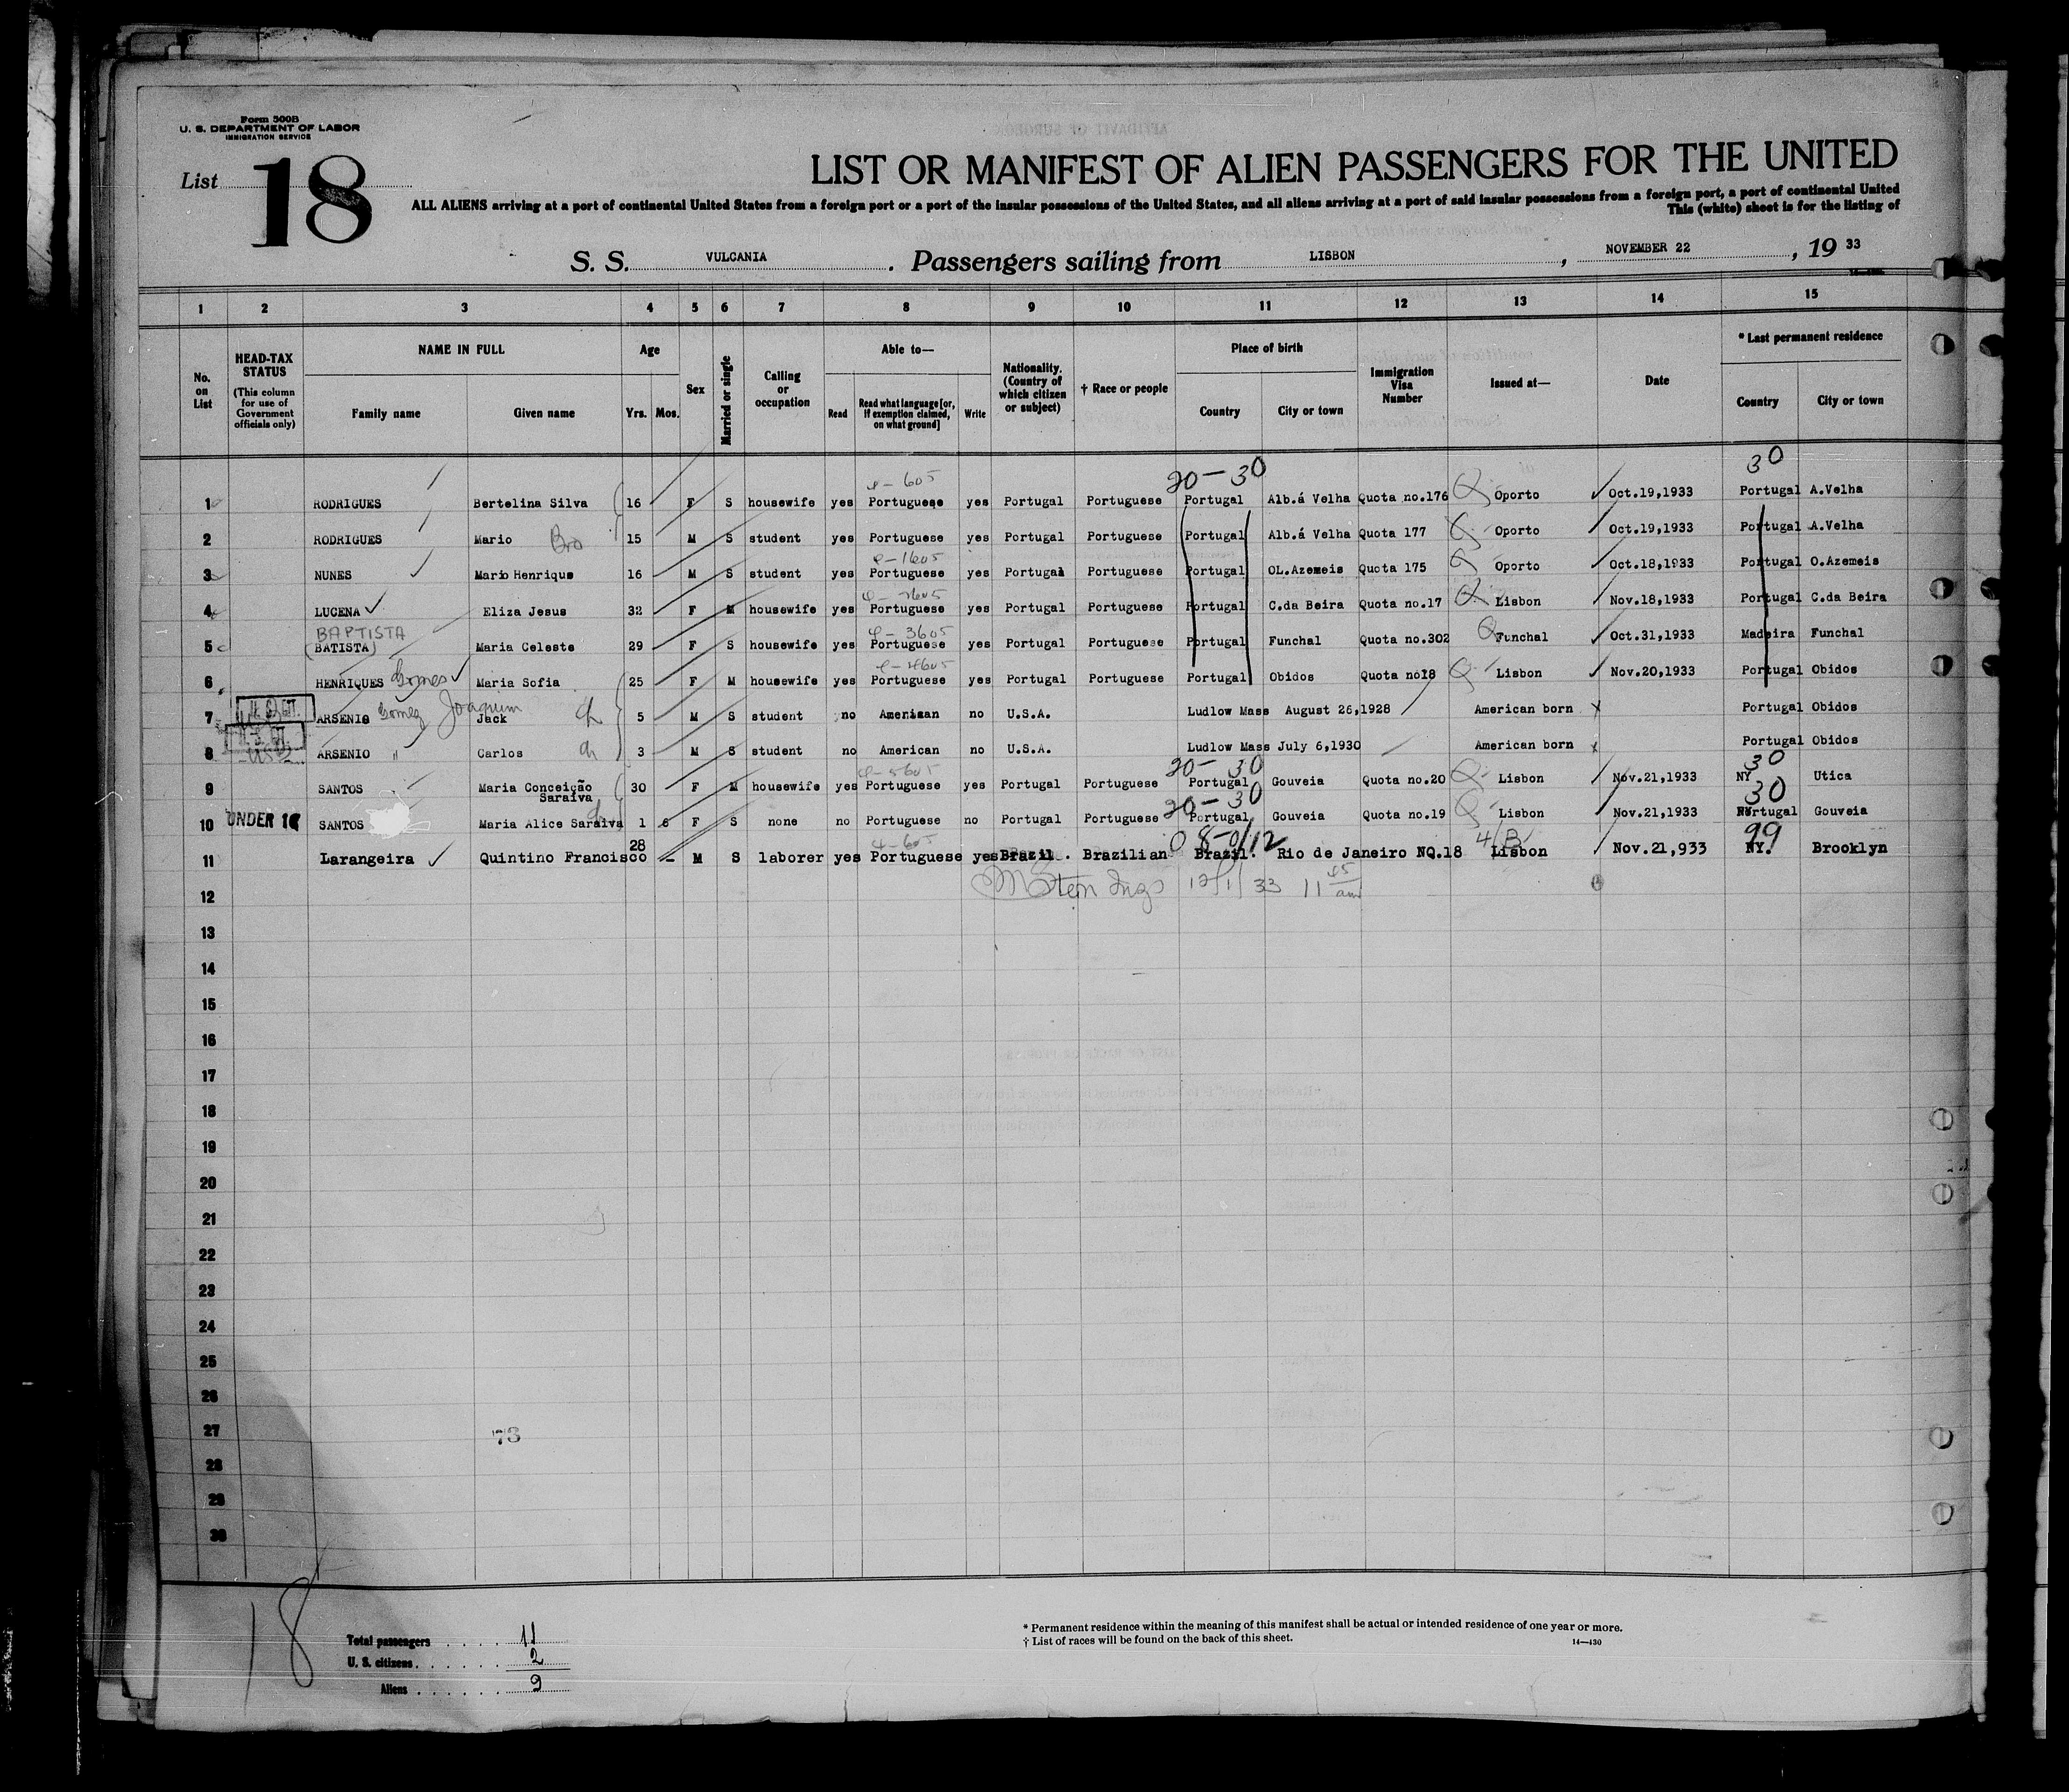 Form 500B
U. S. DEPARTMENT OF LABOR
IMMIGRATION SERVICE
List 18
LIST OR MANIFEST OF ALIEN PASSENGERS FOR THE UNITED
ALL ALIENS arriving at a port of continental United States from a foreign port or a port of the insular possessions of the United States, and all aliens arriving at a port of said insular possessions from a foreign port, a port of continental United
This (white) sheet is for the listing of
S. S. VULCANIA. Passengers sailing from LISBON, NOVEMBER 22, 19 33
1 2 3 4 5 6 7 8 9 10 11 12 13 14 15
No. on List
HEAD-TAX STATUS (This column for use of Government officials only)
NAME IN FULL Family name Given name
Age Yrs. Mos.
Sex
Married or single
Calling or occupation
Able to— Read Read what language [or, if exemption claimed, on what ground] Write
Nationality. (Country of which citizen or subject)
† Race or people
Place of birth Country City or town
Immigration Visa Number
Issued at—
Date
* Last permanent residence Country City or town
20-30 30
1 RODRIGUES Bertelina Silva 16 F S housewife yes Portuguese yes Portugal Portuguese Portugal Alb.á Velha Quota no.176 Oporto Oct.19,1933 Portugal A.Velha
2 RODRIGUES Mario Bro 15 M S student yes Portuguese yes Portugal Portuguese Portugal Alb.á Velha Quota 177 Oporto Oct.19,1933 Portugal A.Velha
3 NUNES Mario Henrique 16 M S student yes Portuguese yes Portugal Portuguese Portugal OL.Azemeis Quota 175 Oporto Oct.18,1933 Portugal O.Azemeis
4 LUCENA Eliza Jesus 32 F M housewife yes Portuguese yes Portugal Portuguese Portugal C.da Beira Quota no.17 Lisbon Nov.18,1933 Portugal C.da Beira
BAPTISTA
5 (BATISTA) Maria Celeste 29 F S housewife yes Portuguese yes Portugal Portuguese Portugal Funchal Quota no.302 Funchal Oct.31,1933 Madeira Funchal
6 HENRIQUES Gomes Maria Sofia 25 F M housewife yes Portuguese yes Portugal Portuguese Portugal Obidos Quota no18 Lisbon Nov.20,1933 Portugal Obidos
Joaquim
7 ARSENIO Gomez Jack ch 5 M S student no Amerinan no U.S.A. Ludlow Mass August 26,1928 American born Portugal Obidos
8 ARSENIO " Carlos ch 3 M S student no American no U.S.A. Ludlow Mass July 6,1930 American born Portugal Obidos
20-30 30
9 SANTOS Maria Conceição Saraiva 30 F M housewife yes Portuguese yes Portugal Portuguese Portugal Gouveia Quota no.20 Lisbon Nov.21,1933 NY Utica
20-30 30
10 UNDER 16 SANTOS Maria Alice Saraiva 1 6 F S none no Portuguese no Portugal Portuguese Portugal Gouveia Quota no.19 Lisbon Nov.21,1933 Portugal Gouveia
99
11 Larangeira Quintino Francisco 28 - M S laborer yes Portuguese yes Brazil. Brazilian Brazil. Rio de Janeiro NQ.18 Lisbon Nov.21,933 NY. Brooklyn
12 Stern 12/1/33 11 45 am
13
14
15
16
17
18
19
20
21
22
23
24
25
26
27 73
28
29
30
18
Total passengers 11
U. S. citizens 2
Aliens 9
* Permanent residence within the meaning of this manifest shall be actual or intended residence of one year or more.
† List of races will be found on the back of this sheet.
14—430